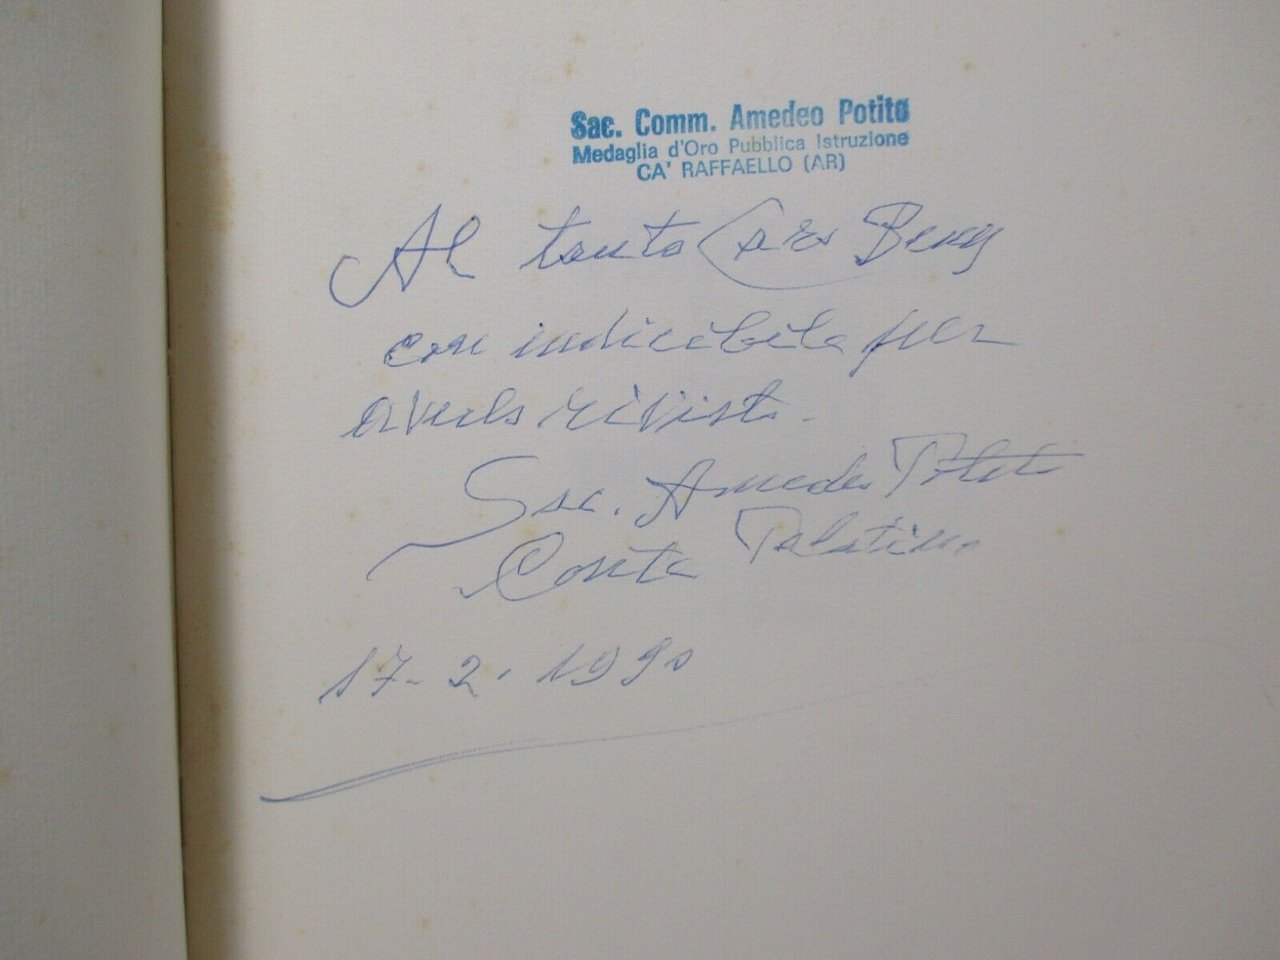 Sac. Comm. Amedeo Potito
Medaglia d'Oro Pubblica Istruzione
CA' RAFFAELLO (AR)
Al tanto Caro Beny
con indicibile per
averlo rivisto.
Sac. Amedeo Potito
Conte Palatino
17-2.1990